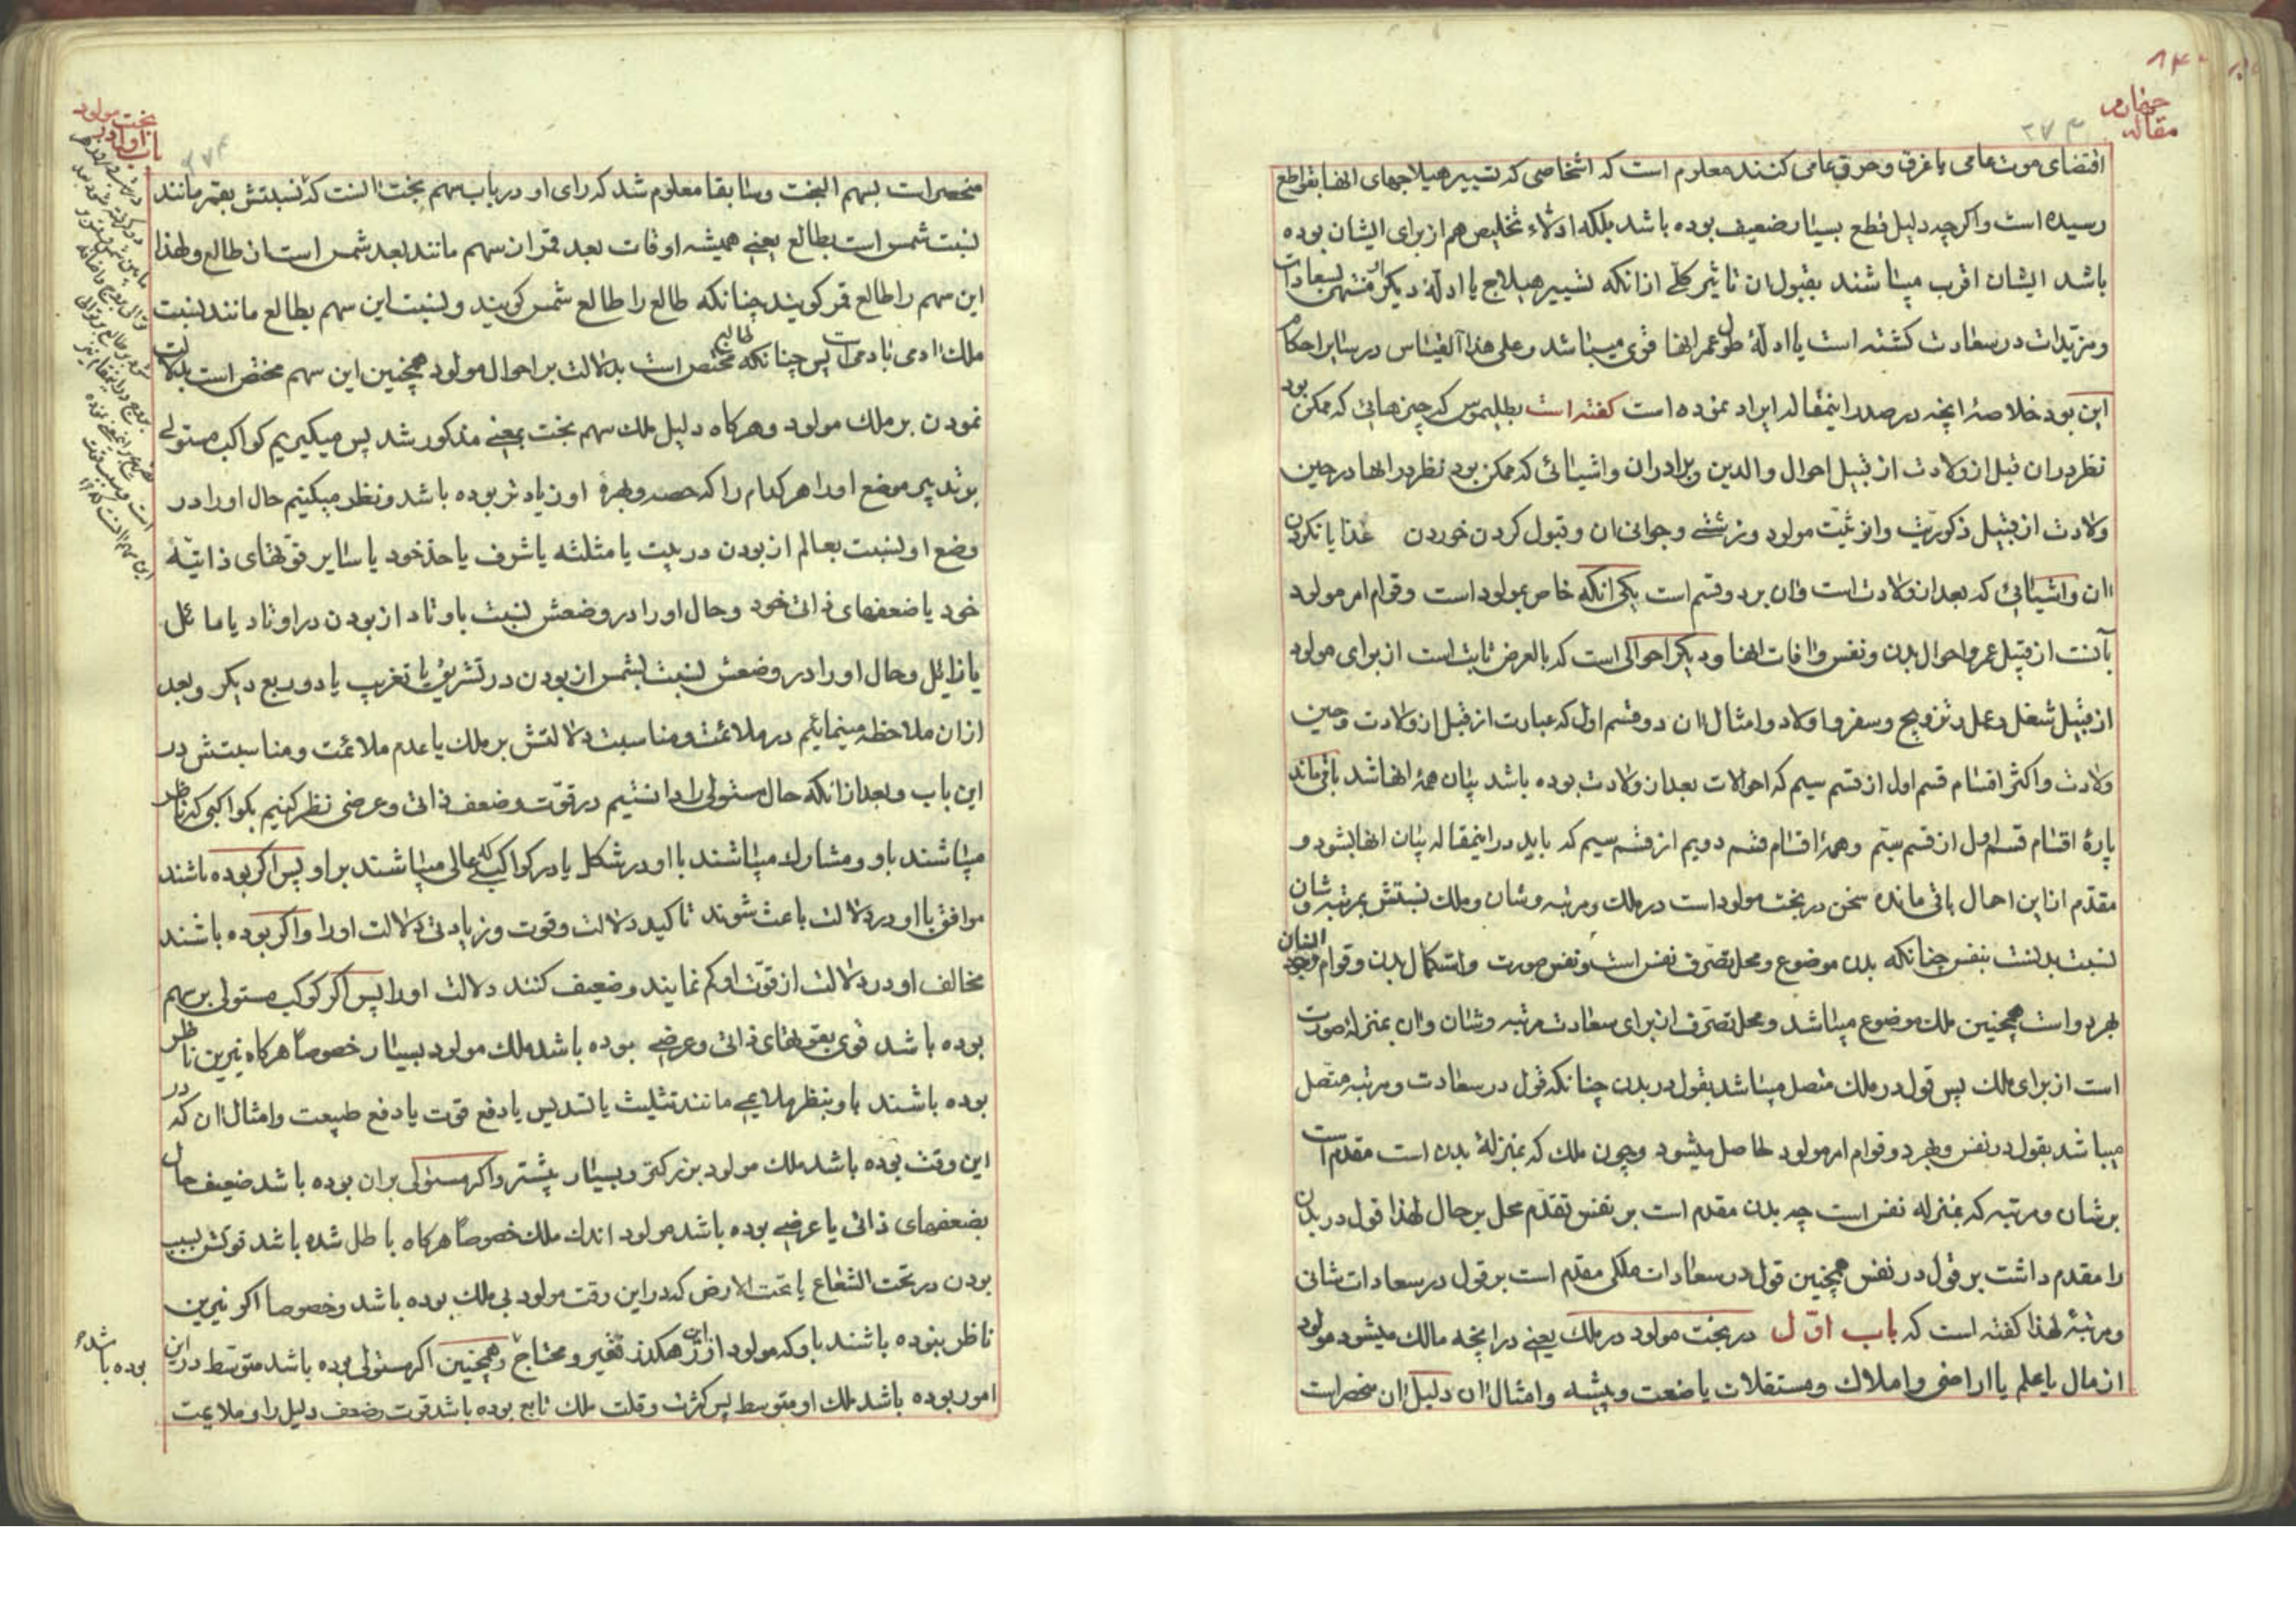 مقاله چهارم
۲۷۳
اقتضای موت عامی یا غرق و حرق عامی کنند معلوم است که اشخاصی که تسییر هیلاجهای انها بقواطع
رسیده است و اکرچه دلیل قطع بسیار ضعیف بوده باشد بلکه ادلاء تخلیص هم از برای ایشان بوده
باشد ایشان اقرب میباشند بقبول ان تاثیر کلی از انکه تسییر هیلاج یا ادلهٔ دیکر او منتهی بسعادات
و مزیدات در سعادت کشته است یا ادلهٔ طول عمر انها قوی میباشد و علی هذا القیاس در سایر احکام
این بود خلاصهٔ انچه در صدر اینمقاله ایراد نموده است کفته است بطلیموس که چیزهائی که ممکن بود
نظر در ان قبل از ولادت از قبیل احوال والدین و برادران و اشیائی که ممکن بود نظر در انها در حین
ولادت از قبیل ذکوریت و انوثیت مولود و زشتی و جوانی ان و قبول کردن خوردن غذا یا نکردن
ان و اشیائی که بعد از ولادت است و ان بر دو قسم است یکی انکه خاص بمولود است و قوام امر مولود
بآنست از قبیل عمر و احوال بدن و نفس و افات انها و دیکر احوالی است که بالعرض ثابت است از برای مولود
از قبیل شغل و عمل و تزویج و سفر و اولاد و امثال ان دو قسم اول که عبارت از قبل از ولادت و حین
ولادت و اکثر اقسام قسم اول از قسم سیم که احوالات بعد از ولادت بوده باشد بیان همهٔ انها شد باقی ماند
پارهٔ اقسام قسم اول از قسم سیم و همهٔ اقسام قسم دویم از قسم سیم که باید در اینمقاله بیان انها بشود و
مقدم از این احال باقی مانده سخن در بخت مولود است در ملک و مرتبه و شان و ملک نسبتش بمرتبه و شان
نسبت بدنست بنفس چنانکه بدن موضوع و محل تصرف نفس است و نفس صورت و استکمال بدن و قوام وجود انسان
بهر دو است همچنین ملک موضوع میباشد و محل تصرف از برای سعادت مرتبه و شان و ان بمنزلهٔ صورت
است از برای ملک پس قول در ملک متصل میباشد بقول در بدن چنانکه قول در سعادت و مرتبه متصل
میباشد بقول در نفس و بهر دو قوام امر مولود حاصل میشود و چون ملک که بمنزلهٔ بدن است مقدم است
بر شان و مرتبه که بمنزله نفس است چه بدن مقدم است بر نفس تقدم محل بر حال لهذا قول در بدن
را مقدم داشت بر قول در نفس همچنین قول در سعادات ملکی مقدم است بر قول در سعادات شانی
و مرتبهٔ لهذا کفته است که باب اول در بخت مولود در ملک یعنی در انچه مالک میشود مولود
از مال یا علم یا اراضی و املاک و مستقلات یا ضعت و پیشه و امثال ان دلیل ان منحصر است
باب اول در بخت مولود
۲۷۴
منحصر است بسهم البخت و سابقا معلوم شد که رای او در باب سهم بخت انست که نسبتش بقمر مانند
نسبت شمس است بطالع یعنی همیشه اوقات بعد قمر از ان سهم مانند بعد شمس است از طالع و لهذا
این سهم را طالع قمر کویند چنانکه طالع را طالع شمس کویند و نسبت این سهم بطالع مانند نسبت
ملک ادمی بادمی است پس چنانکه طالع مختص است بدلالت بر احوال مولود همچنین این سهم مختص است بدلالت
نمودن بر ملک مولود و هرکاه دلیل ملک سهم بخت بمعنی مذکور شد پس میکیریم کواکب مستولی
بوتد پیر موضع او را هر کدام را که حصه و بهرهٔ او زیادتر بوده باشد و نظر میکنیم حال او را در
وضع او نسبت بعالم از بودن در بیت یا مثلثه یا شرف یا حد خود یا سایر قوتهای ذاتیهٔ
خود یا ضعفهای ذاتی خود و حال او را در وضعش نسبت باوتاد از بودن در اوتاد یا مائل
یا زائل و حال او را در وضعش نسبت بشمس از بودن در تشریق یا تغریب یا دو ربع دیکر و بعد
از ان ملاحظه مینمائیم در ملائمت و مناسبت دلالتش بر ملک یا عدم ملائمت و مناسبتش در
این باب و بعد از انکه حال مستولی را دانستیم در قوت و ضعف ذاتی و عرضی نظر کنیم بکواکبی که ناظر
میباشند باو و مشارک میباشند با او در شکل یا در کواکبی که عالی میباشند بر او پس اکر بوده باشند
موافق با او در دلالت باعث شوند تاکید دلالت و قوت و زیادتی دلالت او را و اکر بوده باشند
مخالف او در دلالت از قوت او کم نمایند و ضعیف کنند دلالت او را پس اکر کوکب مستولی بر سهم
بوده باشد قوی بقوتهای ذاتی و عرضی بوده باشد ملک مولود بسیار خصوصا هرکاه نیرین ناظر
بوده باشند باو بنظر ملایمی مانند تثلیث یا تسدیس یا دفع قوت یا دفع طبیعت و امثال ان که در
این وقت بوده باشد ملک مولود بزرکتر و بسیار بیشتر و اکر مستولی بران بوده باشد ضعیف حال
بضعفهای ذاتی یا عرضی بوده باشد مولود اندک ملک خصوصا هرکاه باطل شده باشد قوتش بسبب
بودن در تحت الشعاع یا تحت الارض که در این وقت مولود بی ملک بوده باشد و خصوصا اکر نیرین
ناظر بنوده باشند باو که مولود از این رهکذر فقیر و محتاج و همچنین اکر مستولی بوده باشد متوسط در این
بوده باشد
امور بوده باشد ملک او متوسط پس کثرت و قلت ملک تابع بوده باشد قوت و ضعف دلیل را و ملایمت